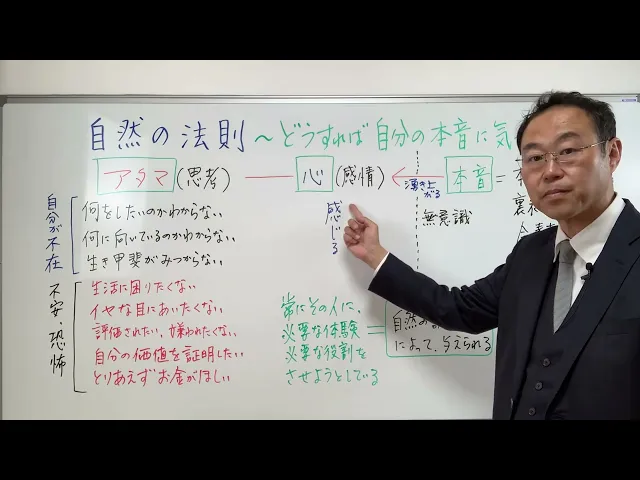 自然の法則 ～どうすれば自分の本音に気
アタマ(思考) 心(感情) 湧き上がる 本音 =
感じる
無意識
自分が不在
何をしたいのかわからない
何に向いているのかわからない
生き甲斐がみつからない
不安・恐怖
生活に困りたくない
イヤな目にあいたくない
評価されたい、嫌われたくない
自分の価値を証明したい
とりあえずお金がほしい
常にその人に、
必要な体験
必要な役割を
させようとしている
=
自然の
によって、与えられる